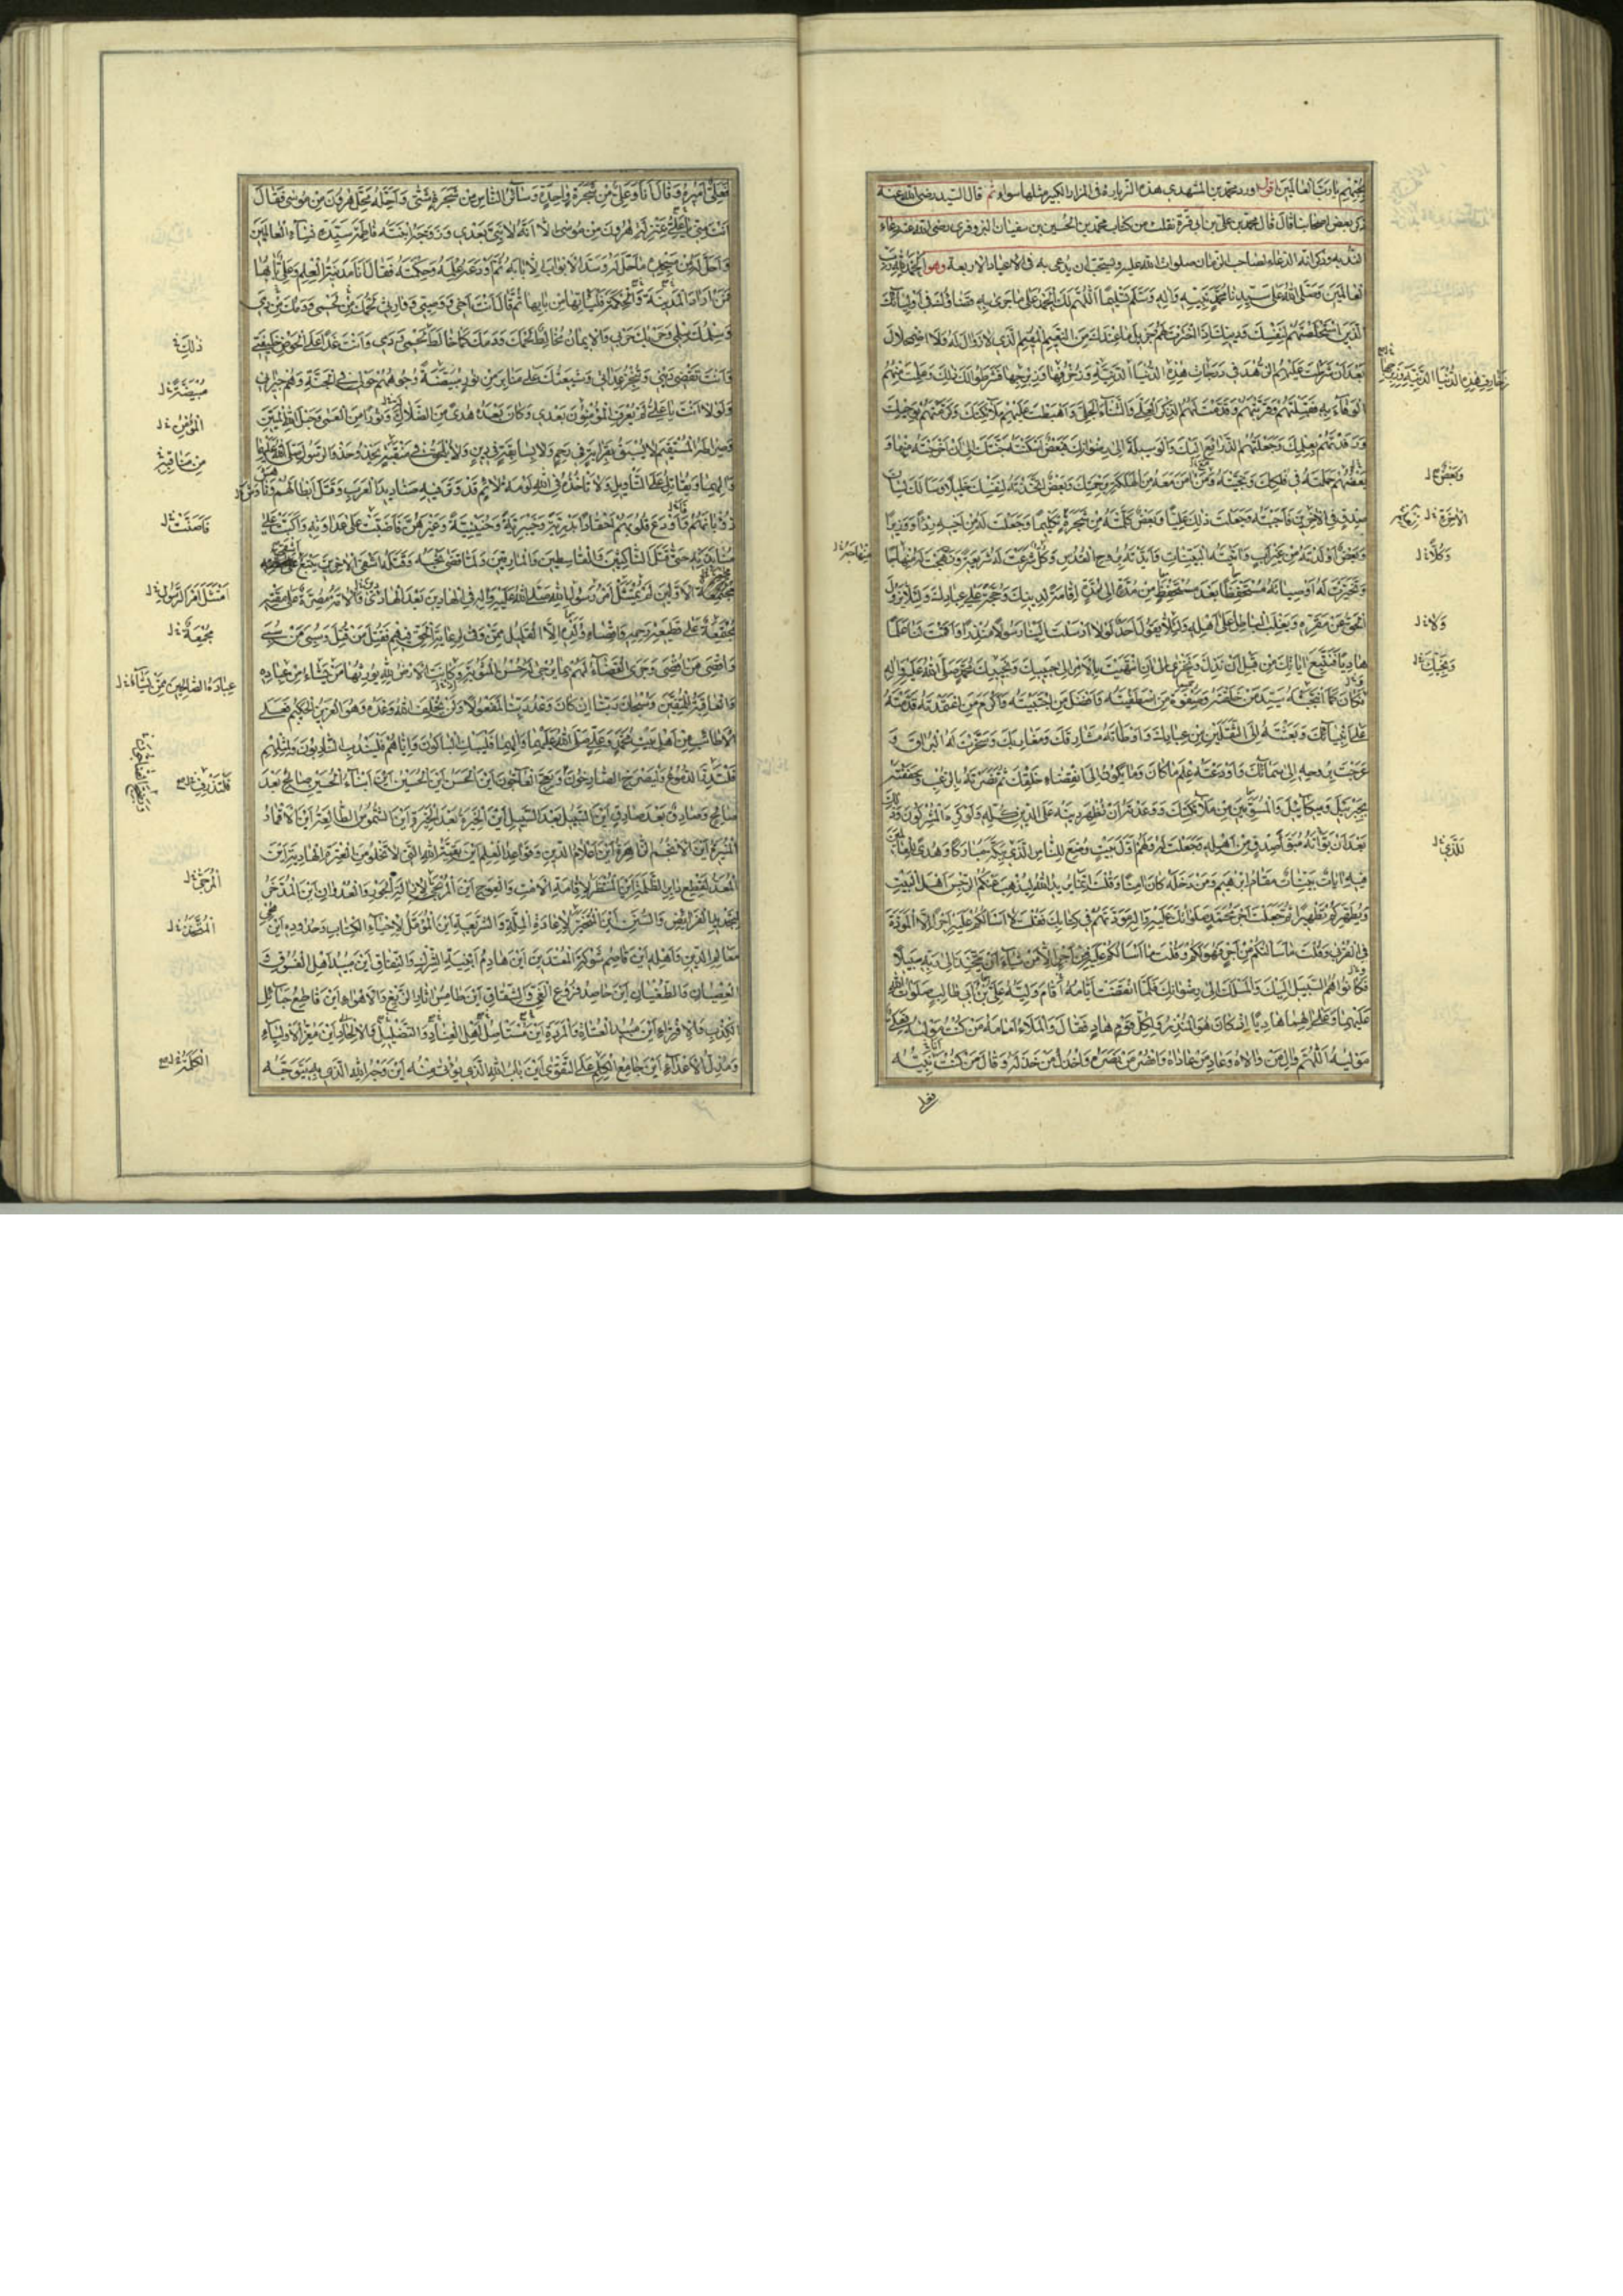 بحبهم يا رب العالمين اقول اورد محمد بن المشهدي هذه الزيارة في المزار الكبير مثلها سواء ثم قال السيد رضي الله عنه
ذكر بعض اصحابنا قال قال محمد بن علي بن ابي قرة نقلت من كتاب محمد بن الحسين بن سفيان البزوفري رضي الله عنه دعاء
الندبة وذكر انه الدعاء لصاحب الزمان صلوات الله عليه ويستحب ان يدعى به في الاعياد الاربعة وهو الحمد لله رب
العالمين وصلى الله على سيدنا محمد نبيه واله وسلم تسليما اللهم لك الحمد على ما جرى به قضاؤك في اوليائك
الذين استخلصتهم لنفسك ودينك اذ اخترت لهم جزيل ما عندك من النعيم المقيم الذي لا زوال له ولا اضمحلال
بعد ان شرطت عليهم الزهد في درجات هذه الدنيا الدنية وزخرفها وزبرجها فشرطوا لك ذلك وعلمت منهم
الوفاء به فقبلتهم وقربتهم وقدمت لهم الذكر العلي والثناء الجلي واهبطت عليهم ملائكتك وكرمتهم بوحيك
ورفدتهم بعلمك وجعلتهم الذرائع اليك والوسيلة الى رضوانك فبعض اسكنته جنتك الى ان اخرجته منها و
بعضهم حملته في فلكك ونجيته ومن امن معه من الهلكة برحمتك وبعض اتخذته لنفسك خليلا وسالك لسان
صدق في الاخرين فاجبته وجعلت ذلك عليا وبعض كلمته من شجرة تكليما وجعلت له من اخيه ردءا ووزيرا
وبعض اولدته من غير اب واتيته البينات وايدته بروح القدس وكل شرعت له شريعة ونهجت له منهاجا
وتخيرت له اوصياءه مستحفظا بعد مستحفظ من مدة الى مدة اقامة لدينك وحجة على عبادك ولئلا يزول
الحق عن مقره ويغلب الباطل على اهله ولئلا يقول احد لولا ارسلت الينا رسولا منذرا واقمت لنا علما
هاديا فنتبع اياتك من قبل ان نذل ونخزى الى ان انتهيت بالامر الى حبيبك ونجيبك محمد صلى الله عليه واله
فكان كما انتجبته سيد من خلقته وصفوة من اصطفيته وافضل من اجتبيته واكرم من اعتمدته قدمته
على انبيائك وبعثته الى الثقلين من عبادك واوطاته مشارقك ومغاربك وسخرت له البراق و
عرجت بروحه الى سمائك واودعته علم ما كان وما يكون الى انقضاء خلقك ثم نصرته بالرعب وحففته
بجبرئيل وميكائيل والمسومين من ملائكتك ووعدته ان تظهر دينه على الدين كله ولو كره المشركون وذلك
بعد ان بواته مبوء صدق من اهله وجعلت له ولهم اول بيت وضع للناس للذي ببكة مباركا وهدى للعالمين
فيه ايات بينات مقام ابرهيم ومن دخله كان امنا وقلت انما يريد الله ليذهب عنكم الرجس اهل البيت
ويطهركم تطهيرا ثم جعلت اجر محمد صلواتك عليه واله مودتهم في كتابك فقلت لا اسالكم عليه اجرا الا المودة
في القربى وقلت ما سالتكم من اجر فهو لكم وقلت ما اسالكم عليه من اجر الا من شاء ان يتخذ الى ربه سبيلا
فكانوا هم السبيل اليك والمسلك الى رضوانك فلما انقضت ايامه اقام وليه علي بن ابي طالب صلوات الله
عليهما وعلى الهما هاديا اذ كان هو المنذر ولكل قوم هاد فقال والملاء امامه من كنت مولاه فعلي
مولاه اللهم وال من والاه وعاد من عاداه وانصر من نصره واخذل من خذله وقال من كنت نبيه
فعلي
وبعض ل
وكلا ل
ولا ل
ونجيك ل
للذي ل
فعلي اميره وقال انا وعلي من شجرة واحدة وسائر الناس من شجرة شتى واحله محل هرون من موسى فقال
انت مني بمنزلة هرون من موسى الا انه لا نبي بعدي وزوجه ابنته فاطمة سيدة نساء العالمين
واحل له من مسجده ما حل له وسد الابواب الا بابه ثم اودعه علمه وحكمته فقال انا مدينة العلم وعلي بابها
فمن اراد المدينة والحكمة فلياتها من بابها ثم قال انت اخي ووصيي ووارثي لحمك من لحمي ودمك من دمي
وسلمك سلمي وحربك حربي والايمان مخالط لحمك ودمك كما خالط لحمي ودمي وانت غدا على الحوض خليفتي
وانت تقضي ديني وتنجز عداتي وشيعتك على منابر من نور مبيضة وجوههم حولي في الجنة وهم جيراني
ولولا انت يا علي لم يعرف المؤمنون بعدي وكان بعده هدى من الضلالة ونورا من العمى وحبل الله المتين
وصراطه المستقيم لا يسبق بقرابة في رحم ولا بسابقة في دين ولا يلحق في منقبة يحذو حذو الرسول صلى الله عليهما
والهما ويقاتل على التاويل ولا تاخذه في الله لومة لائم قد وتر فيه صناديد العرب وقتل ابطالهم وناوش
ذؤبانهم فاودع قلوبهم احقادا بدرية وخيبرية وحنينية وغيرهن فاضبت على عداوته واكبت على
منابذته حتى قتل الناكثين والقاسطين والمارقين ولما قضى نحبه وقتله اشقى الاخرين يتبع
الاولين لم يمتثل امر رسول الله صلى الله عليه واله في الهادين بعد الهادين والامة مصرة على مقته
مجتمعة على قطيعة رحمه واقصاء ولده الا القليل ممن وفى لرعاية الحق فيهم فقتل من قتل وسبي من سبي
واقصي من اقصي وجرى القضاء لهم بما يرجى له حسن المثوبة وكانت الارض لله يورثها من يشاء من عباده
والعاقبة للمتقين وسبحان ربنا ان كان وعد ربنا لمفعولا ولن يخلف الله وعده وهو العزيز الحكيم فعلى
الاطائب من اهل بيت محمد وعلي صلى الله عليهما والهما فليبك الباكون واياهم فليندب النادبون ولمثلهم
فلتدر الدموع وليصرخ الصارخون ويعج العاجون اين الحسن اين الحسين اين ابناء الحسين صالح بعد
صالح وصادق بعد صادق اين السبيل بعد السبيل اين الخيرة بعد الخيرة اين الشموس الطالعة اين الاقمار
المنيرة اين الانجم الزاهرة اين اعلام الدين وقواعد العلم اين بقية الله التي لا تخلو من العترة الهادية اين
المعد لقطع دابر الظلمة اين المنتظر لاقامة الامت والعوج اين المرتجى لازالة الجور والعدوان اين المدخر
لتجديد الفرائض والسنن اين المتخير لاعادة الملة والشريعة اين المؤمل لاحياء الكتاب وحدوده اين محيي
معالم الدين واهله اين قاصم شوكة المعتدين اين هادم ابنية الشرك والنفاق اين مبيد اهل الفسوق و
العصيان والطغيان اين حاصد فروع الغي والشقاق اين طامس اثار الزيغ والاهواء اين قاطع حبائل
الكذب والافتراء اين مبيد العتاة والمردة اين مستاصل اهل العناد والتضليل والالحاد اين معز الاولياء
ومذل الاعداء اين جامع الكلم على التقوى اين باب الله الذي يؤتى منه اين وجه الله الذي اليه يتوجه
ذلك
مبيضة ل
المؤمن ل
فاصنت ل
امتثل امر الرسول ل
مجمعة ل
عباده الصالحين ممن يشاء ل
فلتذرف
المرجى ل
المتخذ ل
الكلمة